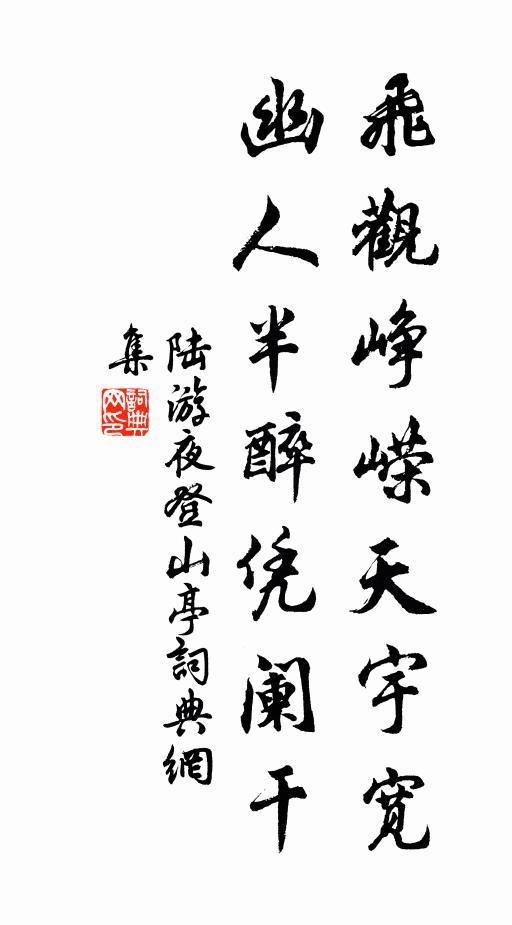 飛觀峥嶸天宇寬
幽人半醉凭阑干
陆游夜登山亭詞典網
集
詞典網印